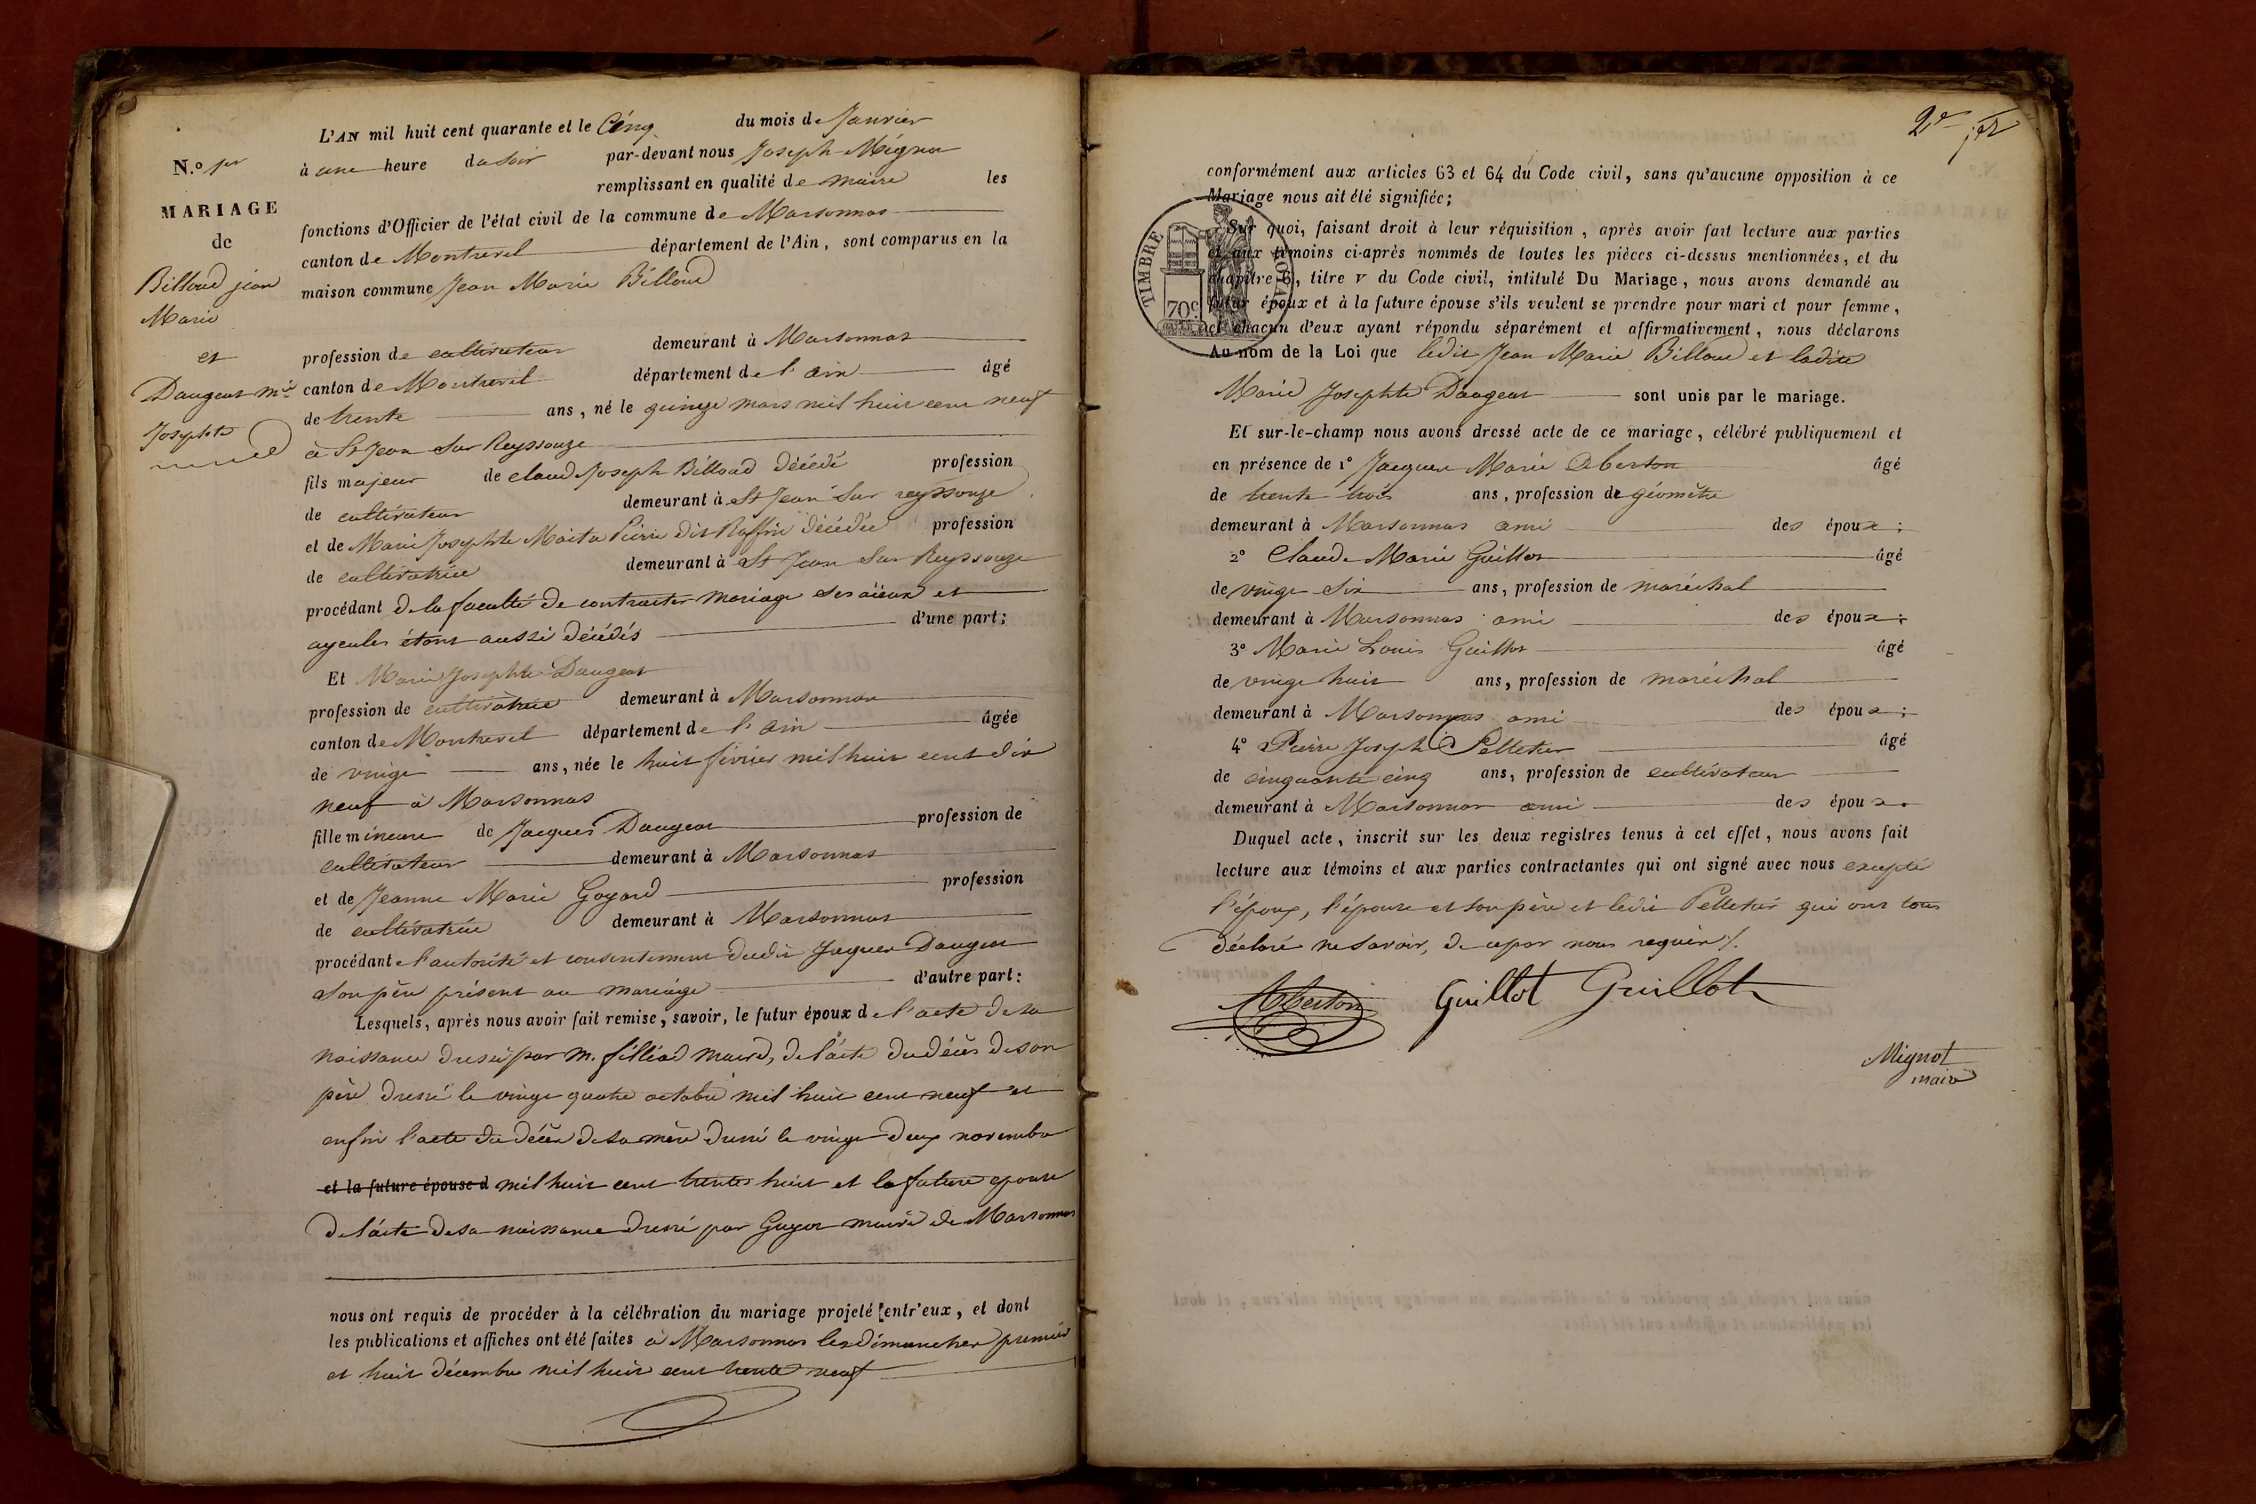 L'AN mil huit cent quarante et le Cinq du mois de Janvier
N.° 1er
à une heure du soir par-devant nous Joseph Mignot
remplissant en qualité de maire les
MARIAGE
fonctions d'Officier de l'état civil de la commune de Marsonnas
de
canton de Montrevel département de l'Ain, sont comparus en la
Billoud jean
maison commune Jean Marie Billoud
Marie
et
profession de cultivateur demeurant à Marsonnas
Daugeat Mie
canton de Montrevel département de l'ain âgé
de trente ans, né le quinze mars mil huit cent neuf
Josephte
à St Jean Sur Reyssouze
fils majeur de claude Joseph Billoud décédé profession
de cultivateur demeurant à St Jean Sur reyssouze
et de Marie Josephte Maitre Pierre dit Ruffin décédée profession
de cultivatrice demeurant à St Jean Sur Reyssouze
procédant de la faculté de contracter mariage ses aïeux et
ayeules étant aussi décédés d'une part;
Et Marie Josephte Daugeat
profession de cultivatrice demeurant à Marsonnas
canton de Montrevel département de l'ain âgée
de vingt ans, née le huit février mil huit cent dix
neuf à Marsonnas
fille mineure de Jacques Daugeat profession de
cultivateur demeurant à Marsonnas
et de Jeanne Marie Goyard profession
de cultivatrice demeurant à Marsonnas
procédant l'autorité et consentement dudit Jaques Daugeat
Son père présent au mariage d'autre part:
Lesquels, après nous avoir fait remise, savoir, le futur époux de l'acte de sa
naissance dressé par M. filliod maire, de l'acte du décès de son
père dressé le vingt quatre octobre mil huit cent neuf et
enfin l'acte du décès de sa mère dressé le vingt deux novembre
et la future épouse d mil huit cent trente huit et la future epouse
de l'acte de sa naissance dressé par Guyot maire de Marsonnas
nous ont requis de procéder à la célébration du mariage projeté entr'eux, et dont
les publications et affiches ont été faites à Marsonnas les dimanches premier
et huit décembre mil huit cent trente neuf
2e
conformément aux articles 63 et 64 du Code civil, sans qu'aucune opposition à ce
Mariage nous ait été signifiée;
Sur quoi, faisant droit à leur réquisition, après avoir fait lecture aux parties
et aux témoins ci-après nommés de toutes les pièces ci-dessus mentionnées, et du
chapitre 6, titre V du Code civil, intitulé Du Mariage, nous avons demandé au
futur époux et à la future épouse s'ils veulent se prendre pour mari et pour femme,
et chacun d'eux ayant répondu séparément et affirmativement, nous déclarons
TIMBRE ROYAL
70c
Au nom de la Loi que ledit Jean Marie Billoud et ladite
Marie Josephte Daugeat sont unis par le mariage.
Et sur-le-champ nous avons dressé acte de ce mariage, célébré publiquement et
en présence de 1° Jacques Marie Aberton âgé
de trente trois ans, profession de géomètre
demeurant à Marsonnas ami des époux;
2° Claude Marie Guillot âgé
de vingt Six ans, profession de maréchal
demeurant à Marsonnas ami des époux;
3° Marie Louis Guillot âgé
de vingt huit ans, profession de maréchal
demeurant à Marsonnas ami des époux;
4° Pierre Joseph Pelletier âgé
de cinquante cinq ans, profession de cultivateur
demeurant à Marsonnas ami des époux.
Duquel acte, inscrit sur les deux registres tenus à cet effet, nous avons fait
lecture aux témoins et aux parties contractantes qui ont signé avec nous excepté
l'époux, l'épouse et Son père et ledit Pelletier qui ont tous
déclaré ne Savoir, de ce par nous requis
Aberton Guillot Guillot
Mignot
maire